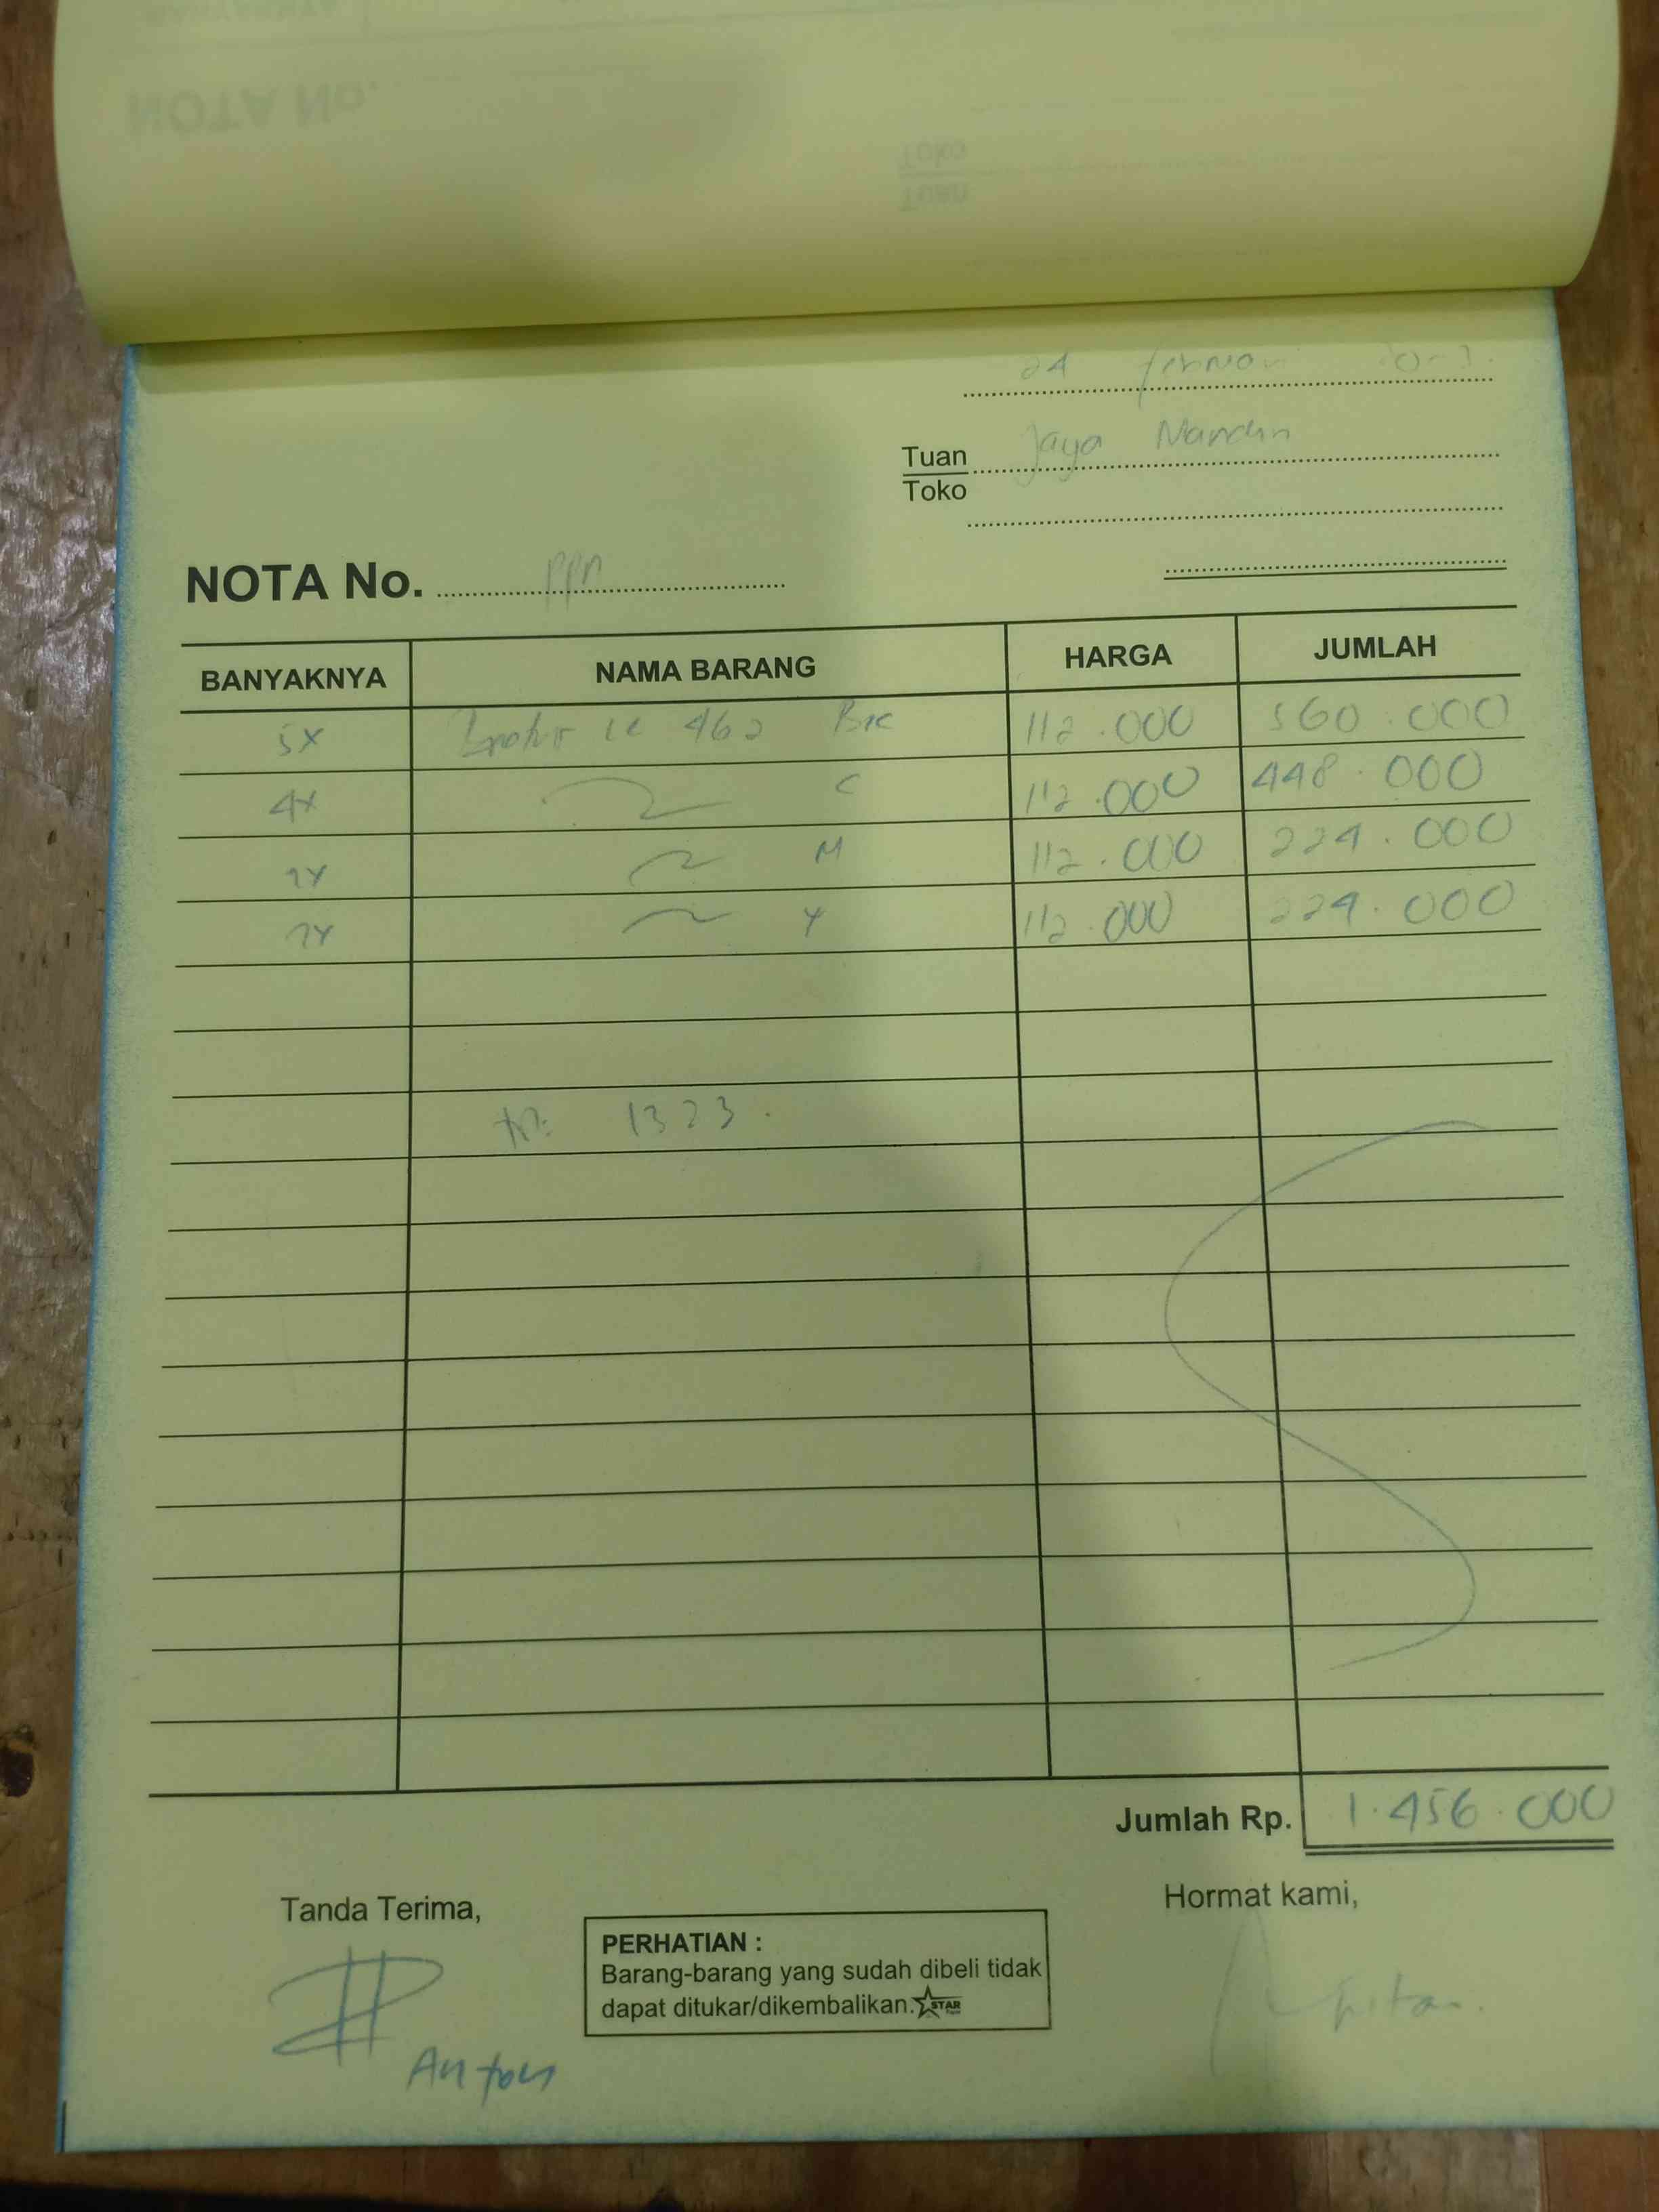 24
Jaya Mandiri
Tuan
Toko
NOTA No. PPN
BANYAKNYA NAMA BARANG HARGA JUMLAH
5x 462 BK 112.000 560.000
4x C 112.000 448.000
2x M 112.000 224.000
2x Y 112.000 224.000
1323
Jumlah Rp. 1.456.000
Tanda Terima, Hormat kami,
PERHATIAN :
Barang-barang yang sudah dibeli tidak
dapat ditukar/dikembalikan. STAR
Anton